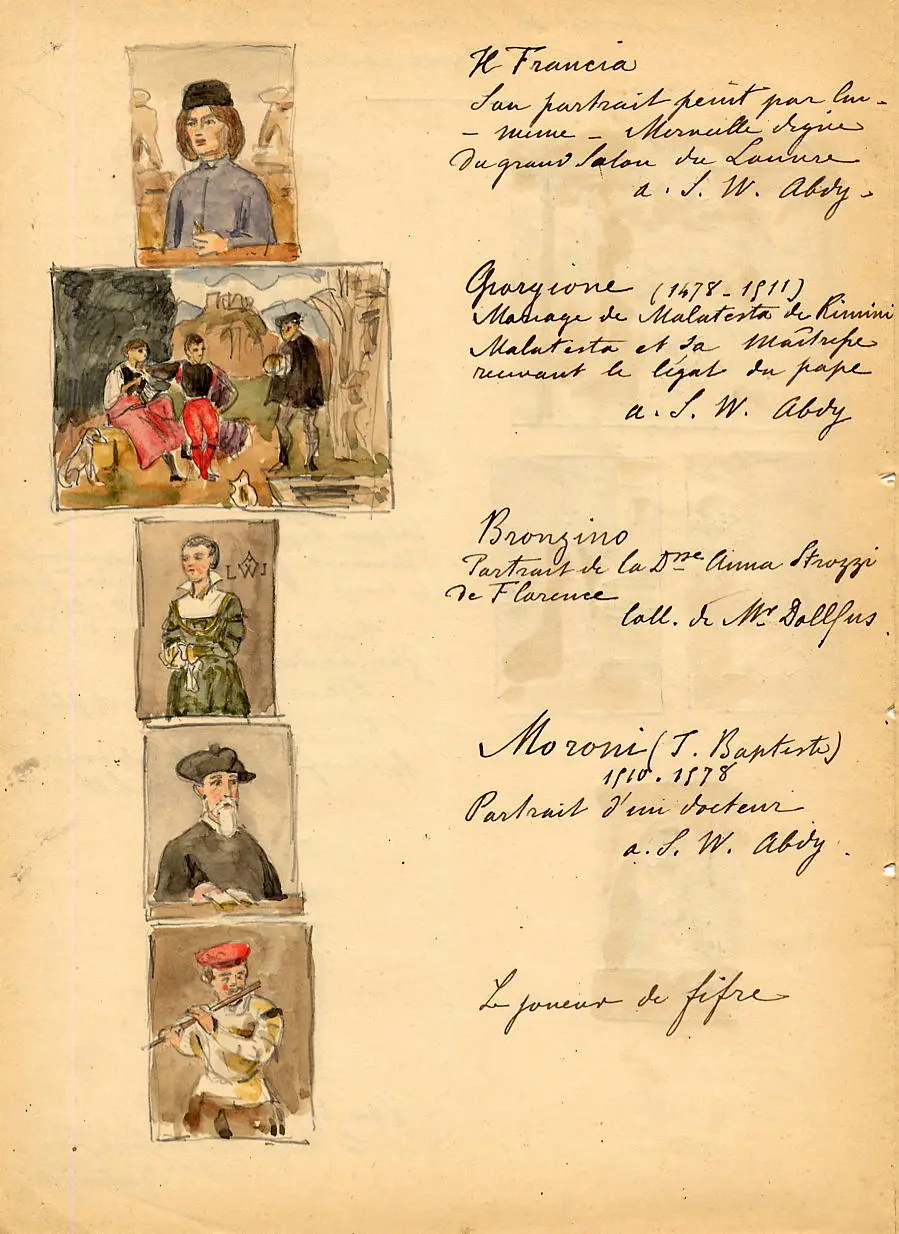 Il Francia
Son portrait peint par lui-
- même - Merveille digne
du grand Salon du Louvre
a. S. W. Abdy.
Giorgione (1478-1511)
Mariage de Malatesta de Rimini
Malatesta et sa Maîtresse
recevant le légat du pape
a. S. W. Abdy
Bronzino
Portrait de la Dsse Anna Strozzi
de Florence
Coll. de Mr Dollfus.
LWJ
Moroni (J. Baptiste)
1510-1578
Portrait d'un docteur
a. S. W. Abdy.
Le joueur de fifre